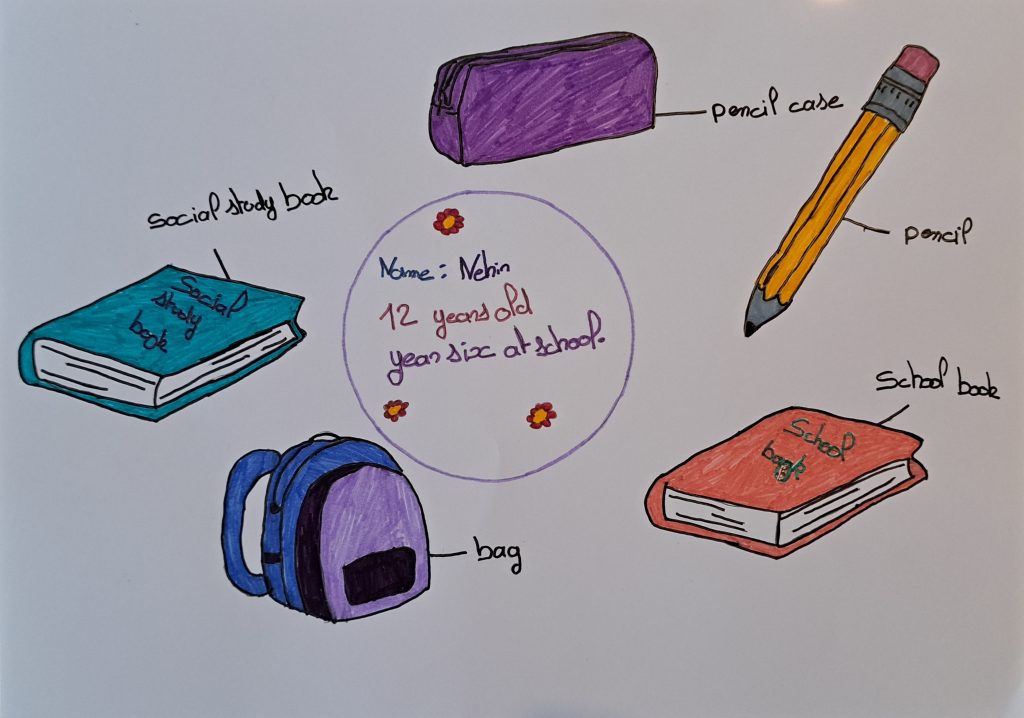 pencil case
pencil
social study book
Social
study
book
Name: Nehin
12 years old
year six at school.
School book
School
book
bag